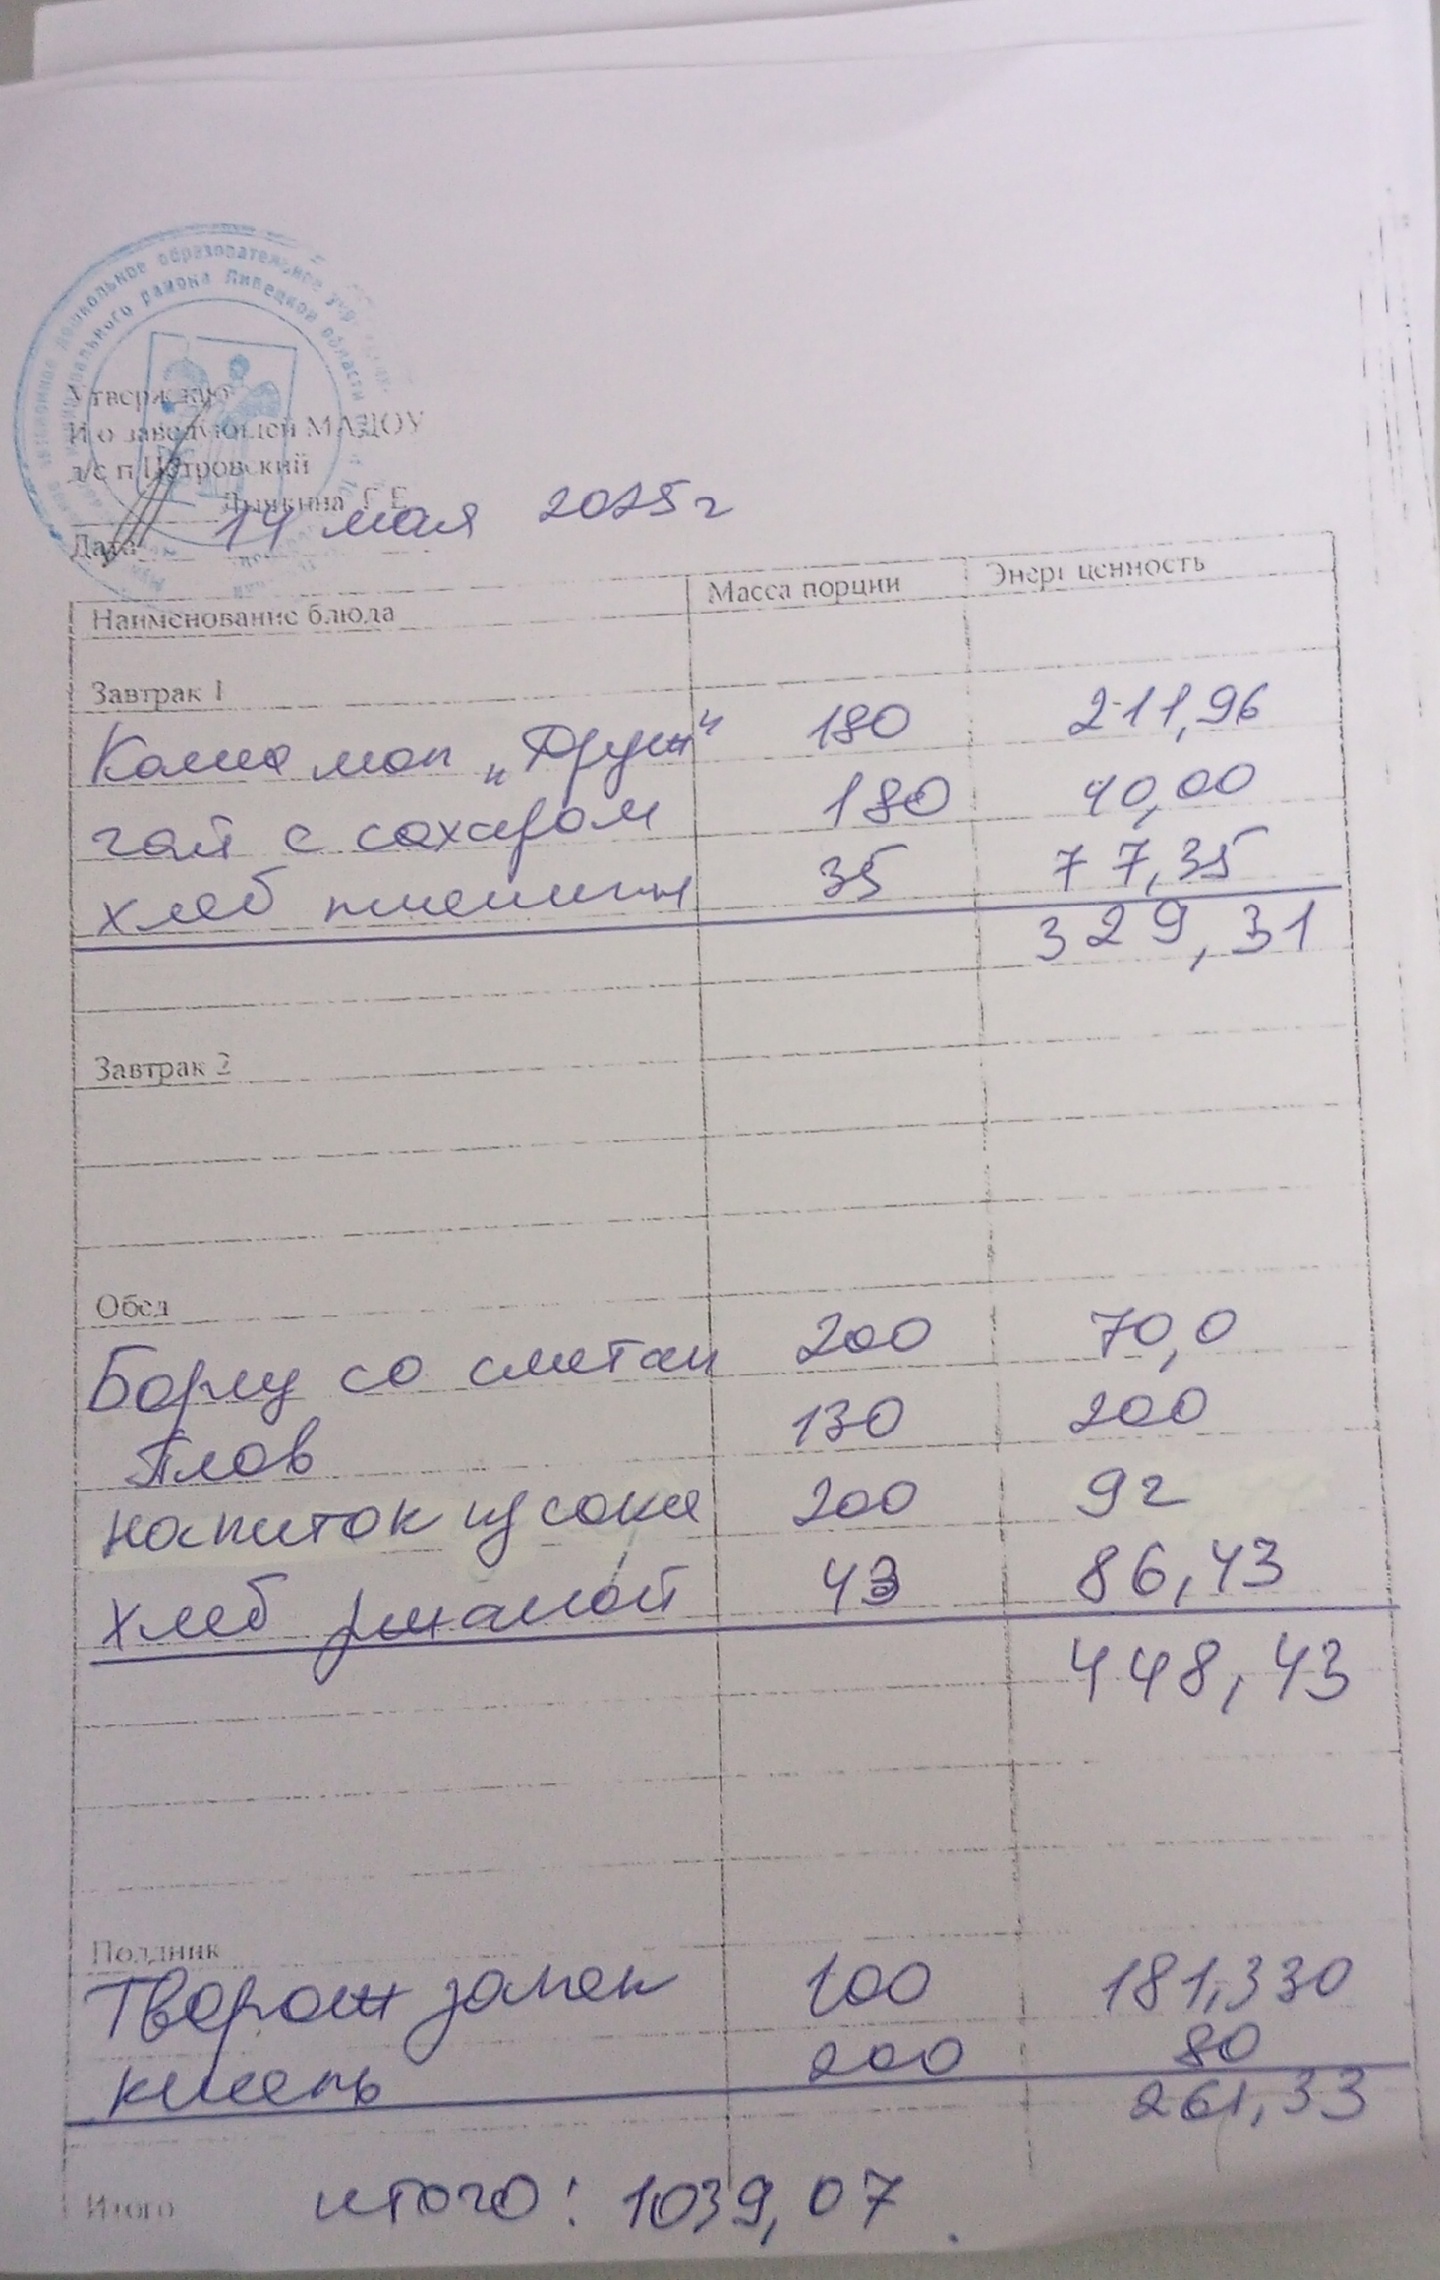 дошкольное образовательное
района Липецкой области
Утверждаю
И о заведующей МАДОУ
д/с п Петровский
Г Е
Дата 14 мая 2025 г
Наименование блюда Масса порции Энерг ценность
Завтрак 1
Каша мол „Друж“ 180 211,96
чай с сахаром 180 40,00
хлеб пшеничн 35 77,35
329,31
Завтрак 2
Обед
Борщ со сметан 200 70,0
Плов 130 200
напиток из сока 200 92
хлеб ржаной 43 86,43
448,43
Полдник
Творож запек 100 181,330
кисель 200 80
261,33
Итого итого: 1039,07